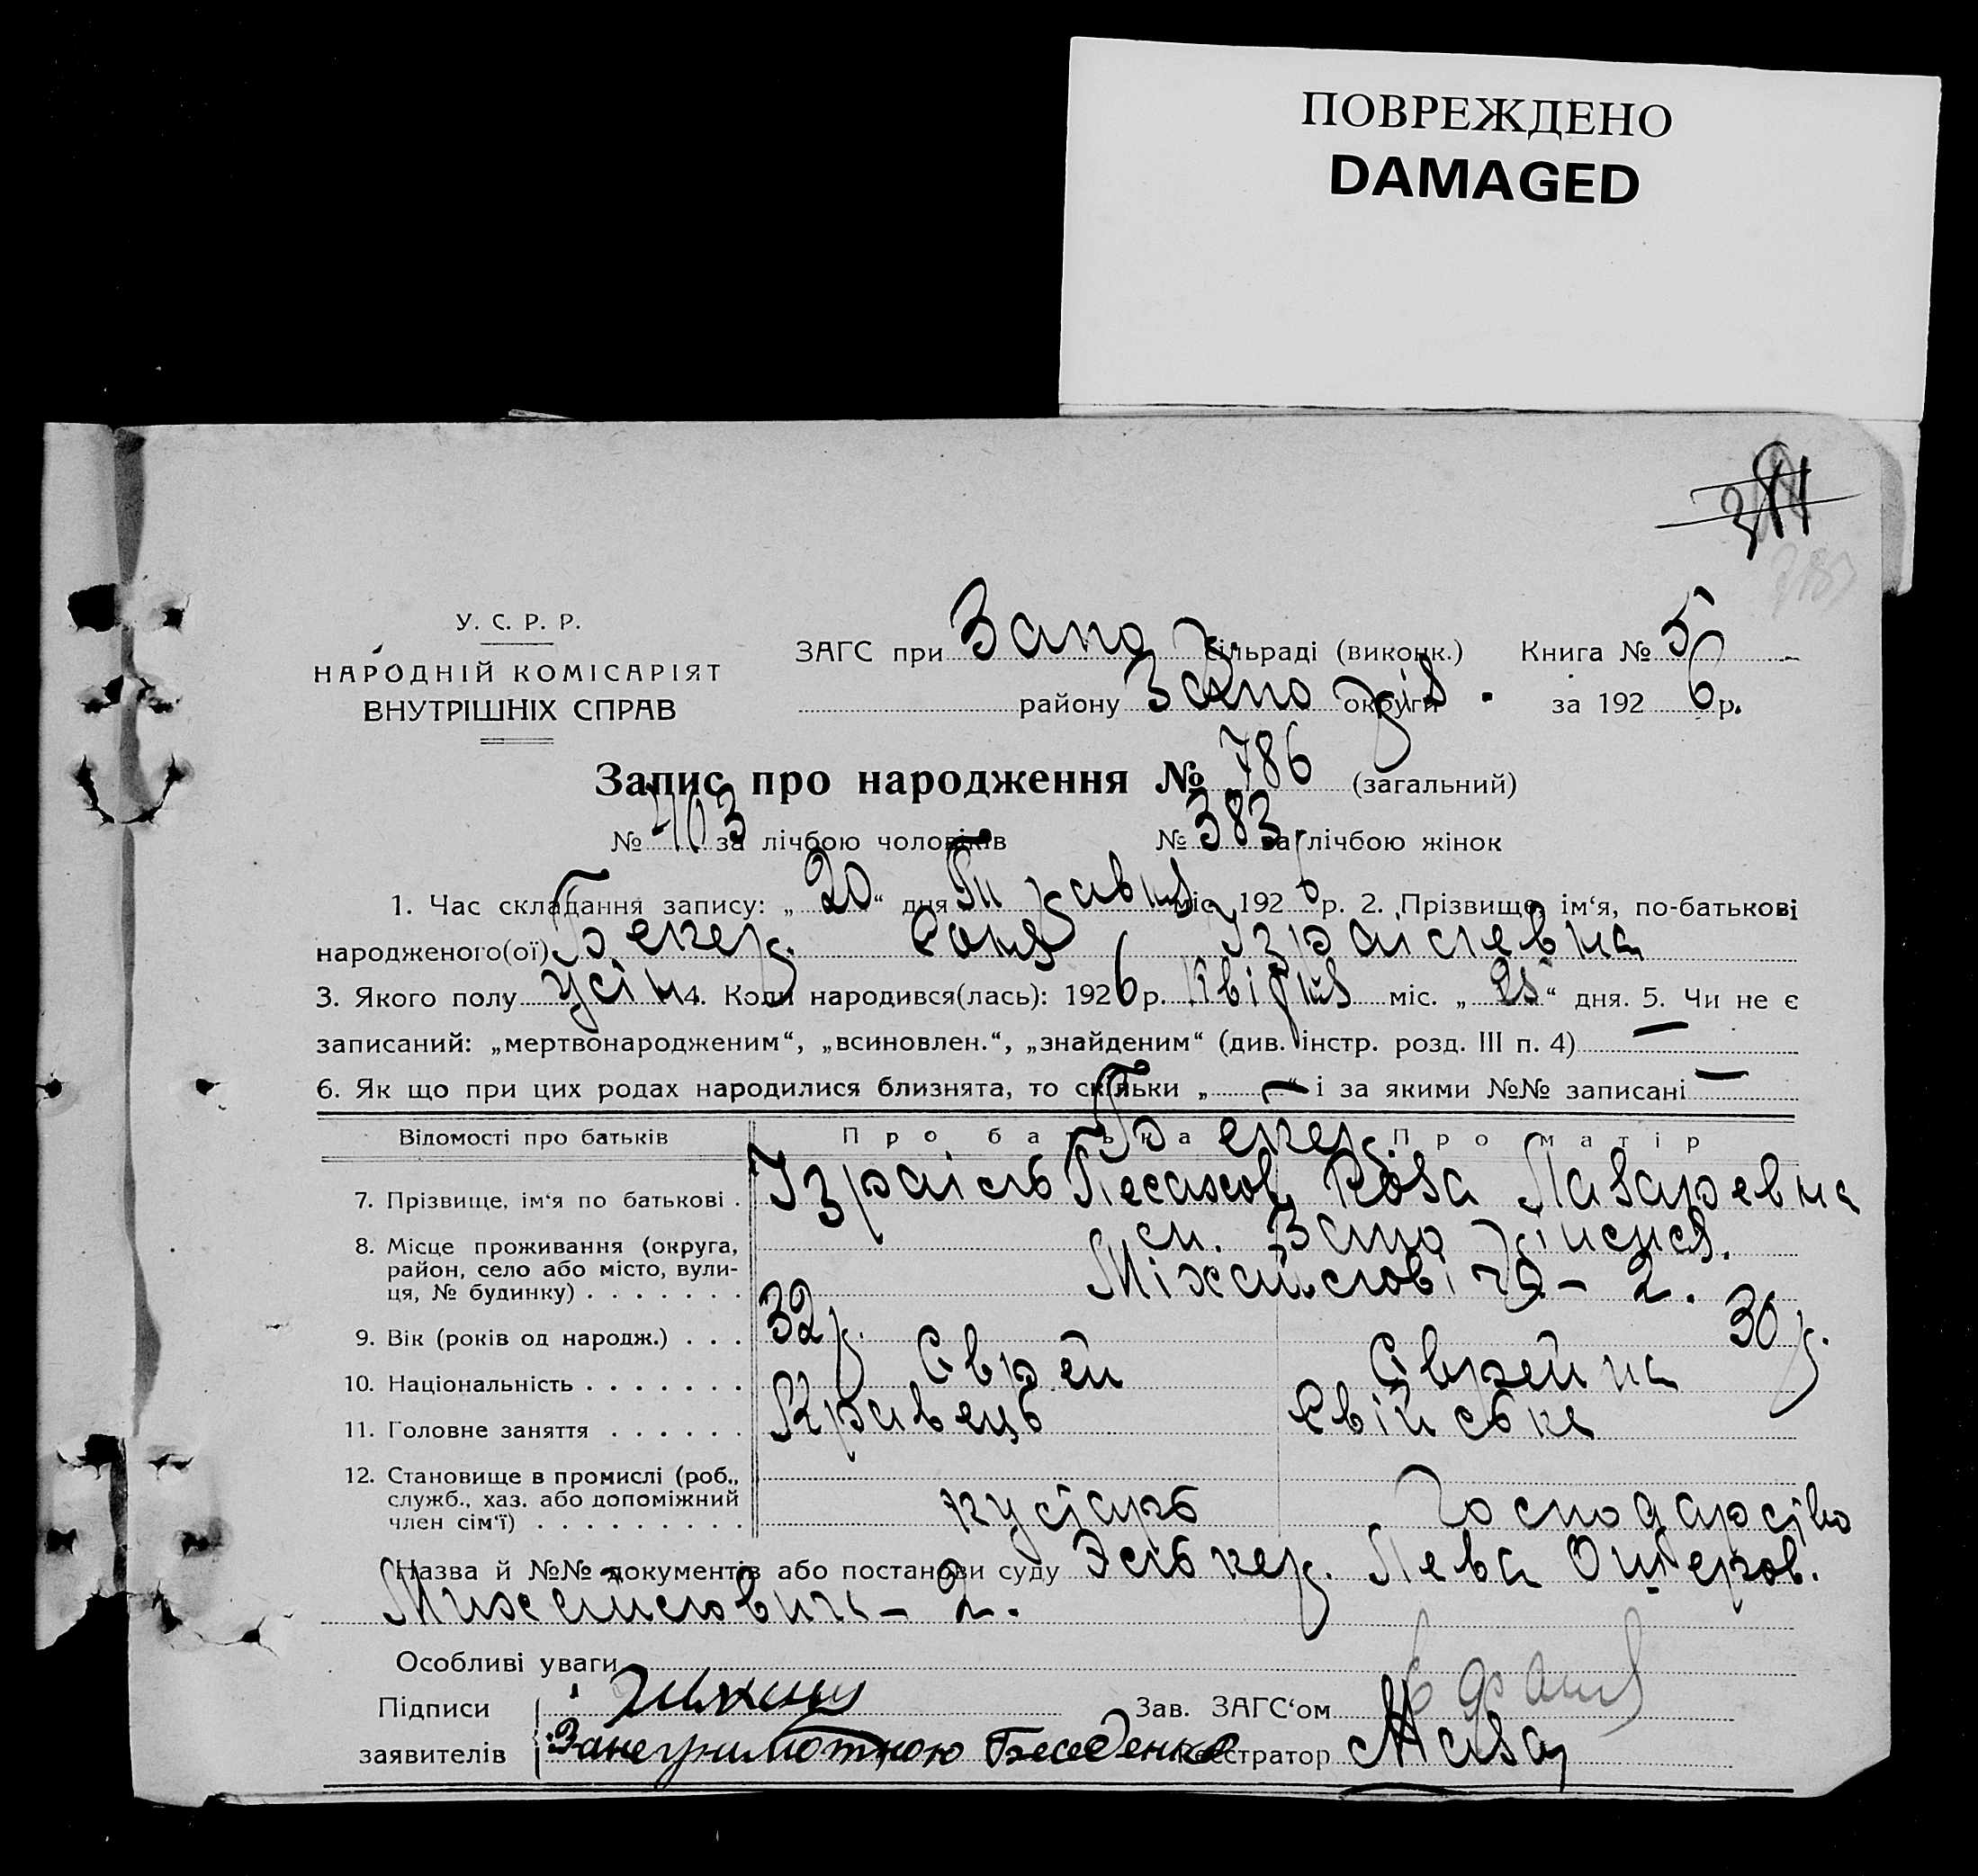 ПОВРЕЖДЕНО
DAMAGED
У. С. Р. Р.
НАРОДНІЙ КОМІСАРІЯТ
ВНУТРІШНІХ СПРАВ
ЗАГС при Запо сільраді (виконк.) Книга № 5
району Запо округи за 1926 р.
Запис про народження № 786 (загальний)
№ 403 за лічбою чоловіків № 383 за лічбою жінок
1. Час складання запису: „20“ дня Травня міс. 1926 р. 2. Прізвище, ім‘я, по-батькові
народженого(ої) Бекер. Соня Ізраілевна
3. Якого полу 4. Коли народився(лась): 1926 р. Квітня міс. „25“ дня. 5. Чи не є
записаний: „мертвонародженим“, „всиновлен.“, „знайденим“ (див. інстр. розд. III п. 4) —
6. Як що при цих родах народилися близнята, то скільки „—“ і за якими №№ записані —
Відомості про батьків Про батька Про матір
Бекер
7. Прізвище, ім‘я по батькові . Ізраіль Песахов. Роза Лазаревна
8. Місце проживання (округа,
район, село або місто, вули-
ця, № будинку) . . . . . . . 2.
9. Вік (років од народж.) . . . 32 р. 30 р.
10. Національність . . . . . . . Єврей Єврейка
11. Головне заняття . . . . . . Кравець Свійське
12. Становище в промислі (роб.,
служб., хаз. або допоміжний
член сім‘ї) . . . . . . . . . кустарь Господарство
Назва й №№ документів або постанови суду Лева
Михайловичь – 2.
Особливі уваги
Підписи Зав. ЗАГС‘ом
заявителів Занеграмотною Беседенко Реєстратор